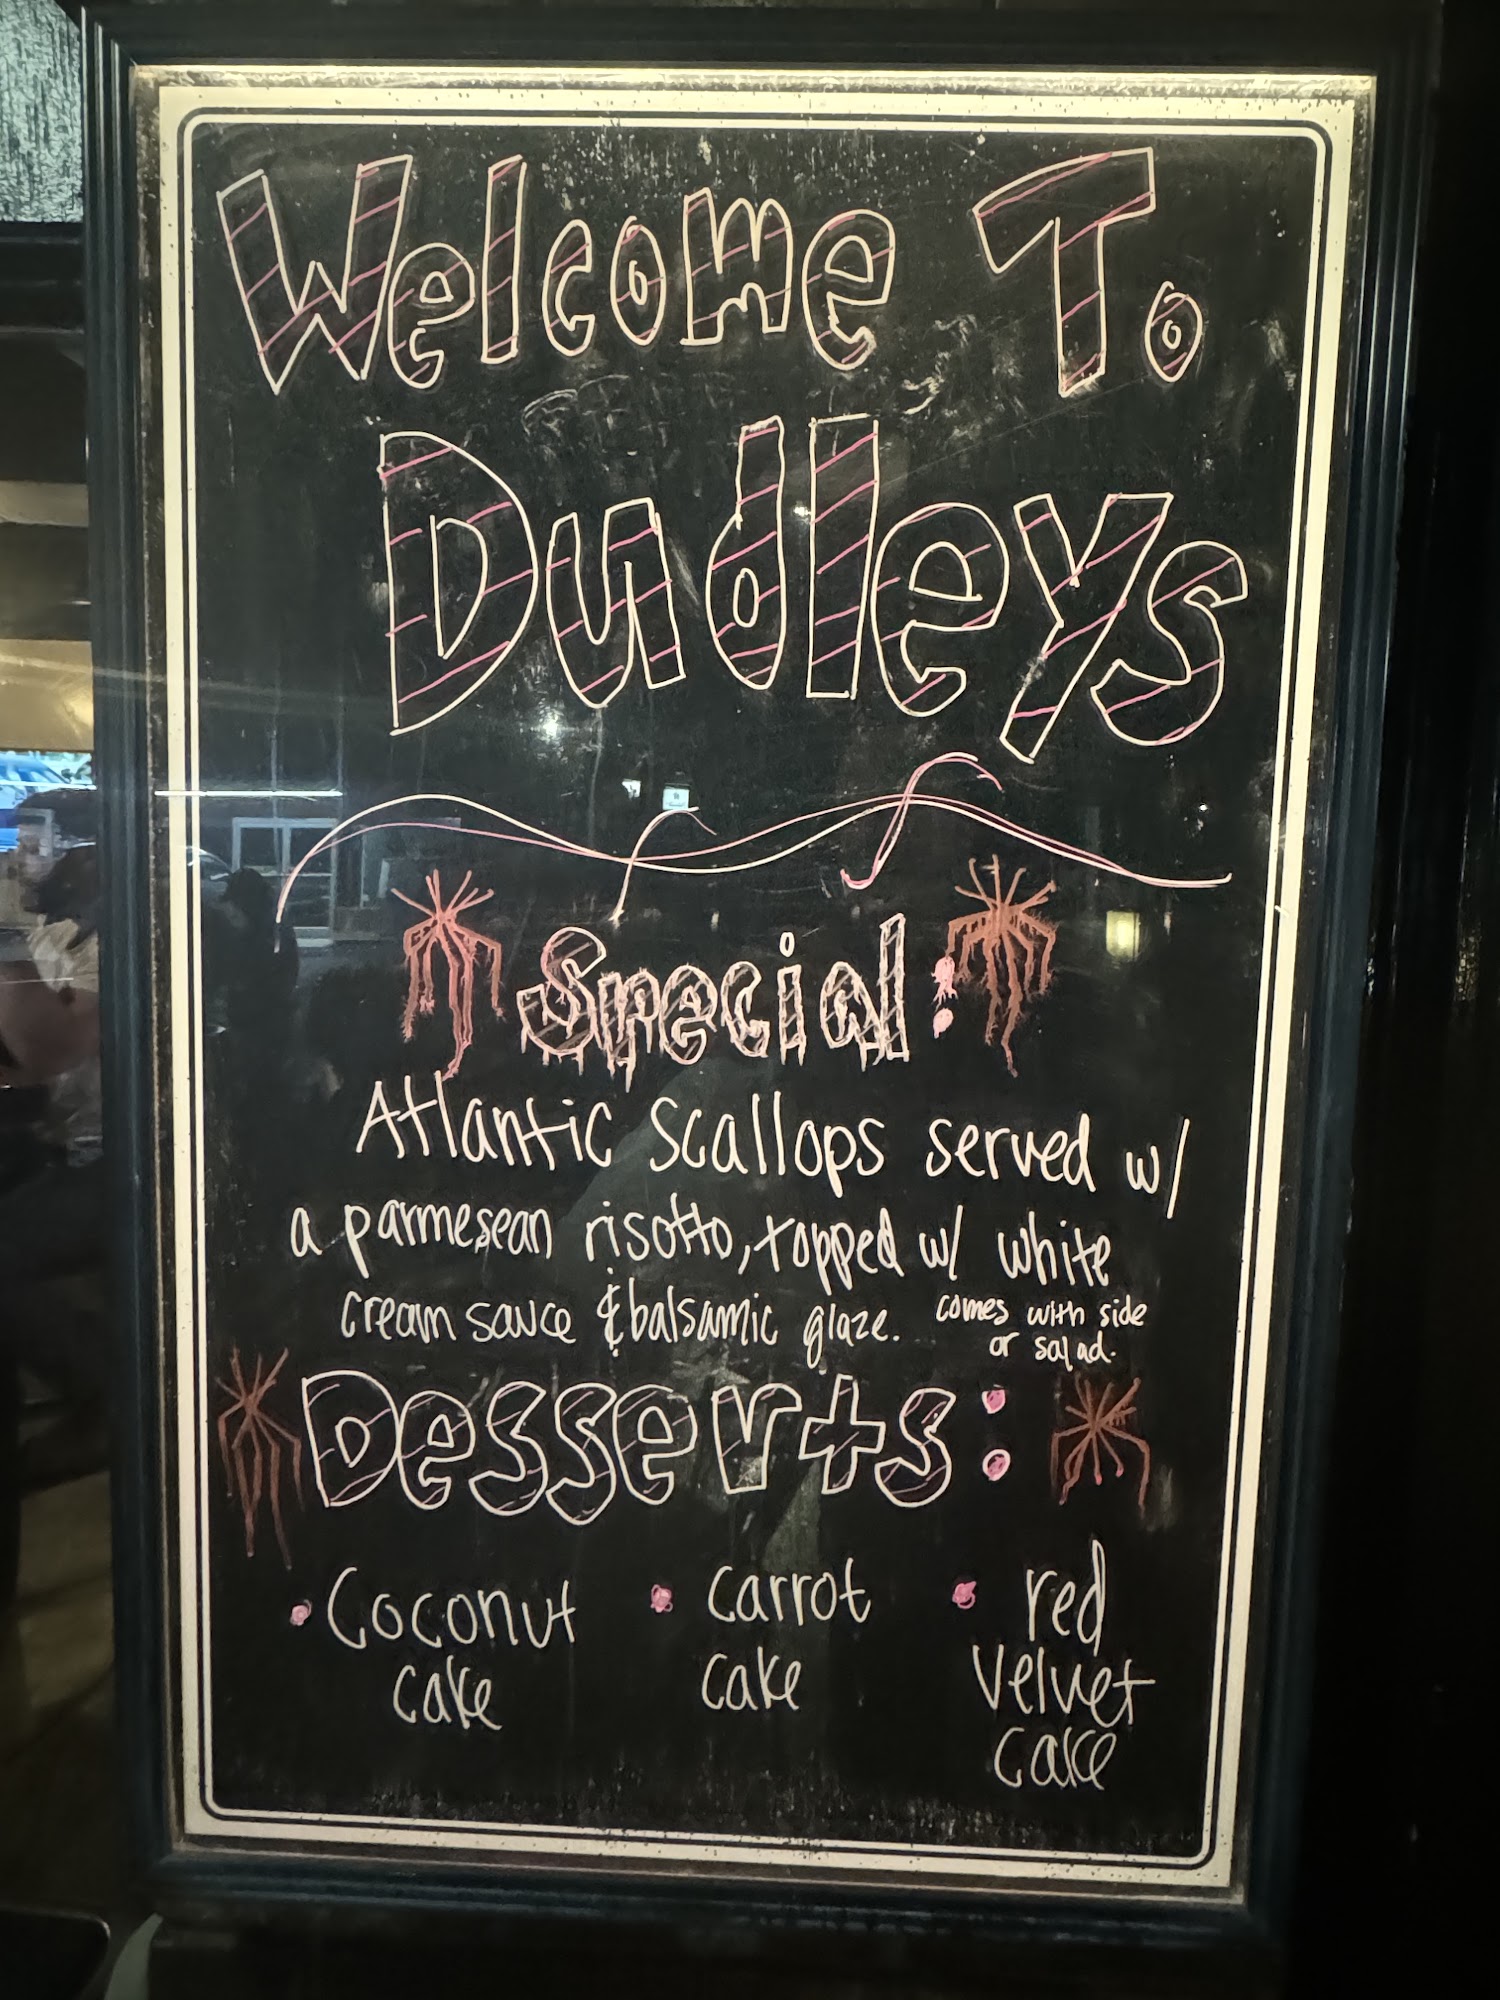 Welcome To
Dudleys
Special:
Atlantic scallops served w/
a parmesean risotto, topped w/ white
cream sauce & balsamic glaze. comes with side
or salad.
Desserts:
• Coconut cake
• carrot cake
• red velvet cake